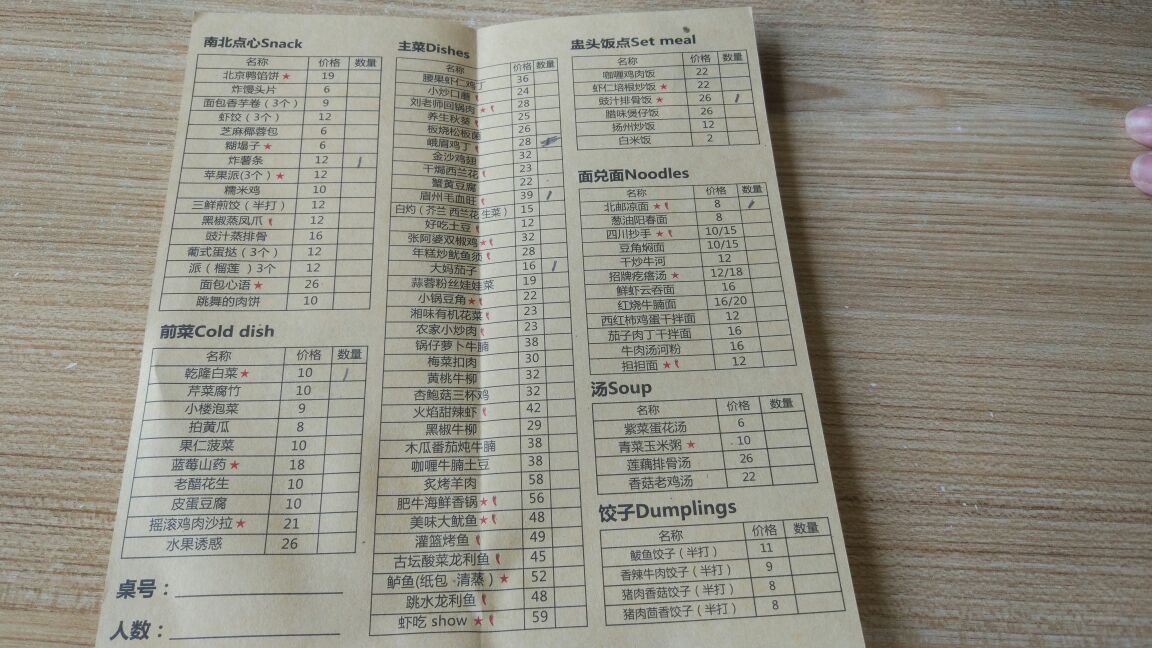 南北点心Snack
名称 价格 数量
北京鸭馅饼★ 19
炸馒头片 6
面包香芋卷（3个） 9
虾饺（3个） 12
芝麻椰蓉包 6
糊塌子★ 6
炸薯条 12
苹果派(3个)★ 12
糯米鸡 10
三鲜煎饺（半打） 12
黑椒蒸凤爪 12
豉汁蒸排骨 16
葡式蛋挞（3个） 12
派（榴莲 ）3个 12
面包心语★ 26
跳舞的肉饼 10
前菜Cold dish
名称 价格 数量
乾隆白菜★ 10
芹菜腐竹 10
小楼泡菜 9
拍黄瓜 8
果仁菠菜 10
蓝莓山药★ 18
老醋花生 10
皮蛋豆腐 10
摇滚鸡肉沙拉★ 21
水果诱惑 26
桌号：
人数：
主菜Dishes
名称 价格 数量
腰果虾仁鸡丁 36
小炒口蘑 24
刘老师回锅肉★ 28
养生秋葵 25
板烧松板菌 26
峨眉鸡丁 28
金沙鸡翅 32
干焗西兰花 23
蟹黄豆腐 22
眉州毛血旺 39
白灼（芥兰 西兰花 生菜） 15
好吃土豆 12
张阿婆双椒鸡★ 32
年糕炒鱿鱼须 28
大妈茄子 16
蒜蓉粉丝娃娃菜 19
小锅豆角★ 22
湘味有机花菜 23
农家小炒肉 23
锅仔萝卜牛腩 38
梅菜扣肉 30
黄桃牛柳 32
杏鲍菇三杯鸡 32
火焰甜辣虾 42
黑椒牛柳 29
木瓜番茄炖牛腩 38
咖喱牛腩土豆 38
炙烤羊肉 58
肥牛海鲜香锅★ 56
美味大鱿鱼★ 48
灌篮烤鱼 49
古坛酸菜龙利鱼 45
鲈鱼(纸包 ·清蒸 ）★ 52
跳水龙利鱼 48
虾吃 show ★ 59
盅头饭点Set meal
名称 价格 数量
咖喱鸡肉饭 22
虾仁培根炒饭★ 22
豉汁排骨饭★ 26
腊味煲仔饭 26
扬州炒饭 12
白米饭 2
面兑面Noodles
名称 价格 数量
北邮凉面★ 8
葱油阳春面 8
四川抄手★ 10/15
豆角焖面 10/15
干炒牛河 12
招牌疙瘩汤★ 12/18
鲜虾云吞面 16
红烧牛腩面 16/20
西红柿鸡蛋干拌面 12
茄子肉丁干拌面 16
牛肉汤河粉 16
担担面★ 12
汤Soup
名称 价格 数量
紫菜蛋花汤 6
青菜玉米粥★ 10
莲藕排骨汤 26
香菇老鸡汤 22
饺子Dumplings
名称 价格 数量
鲅鱼饺子（半打） 11
香辣牛肉饺子（半打） 9
猪肉香菇饺子（半打） 8
猪肉茴香饺子（半打） 8